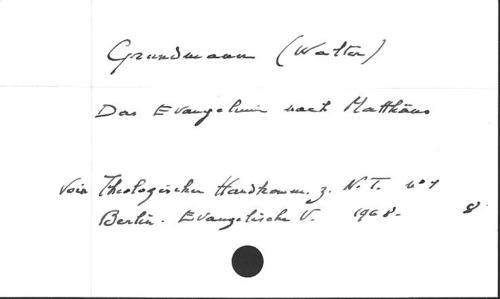 Grundmann (Walter)
Das Evangelium nach Matthäus
Voir Theologischer Handkomm. z. N.T. n° 1
Berlin. Evangelische V. 1968. 8°